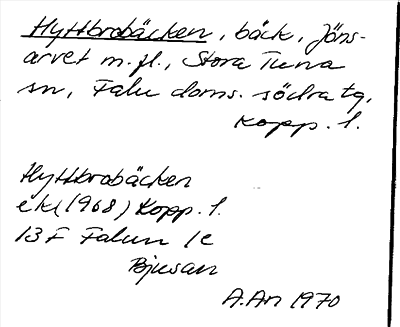 Hyttbrobäcken, bäck, Jöns-
arvet m.fl., Stora Tuna
sn, Falu doms. södra tg,
Kopp. l.
Hyttbrobäcken
ek (1968) Kopp. l.
13 F Falun 1c
Bjusan
A.An 1970